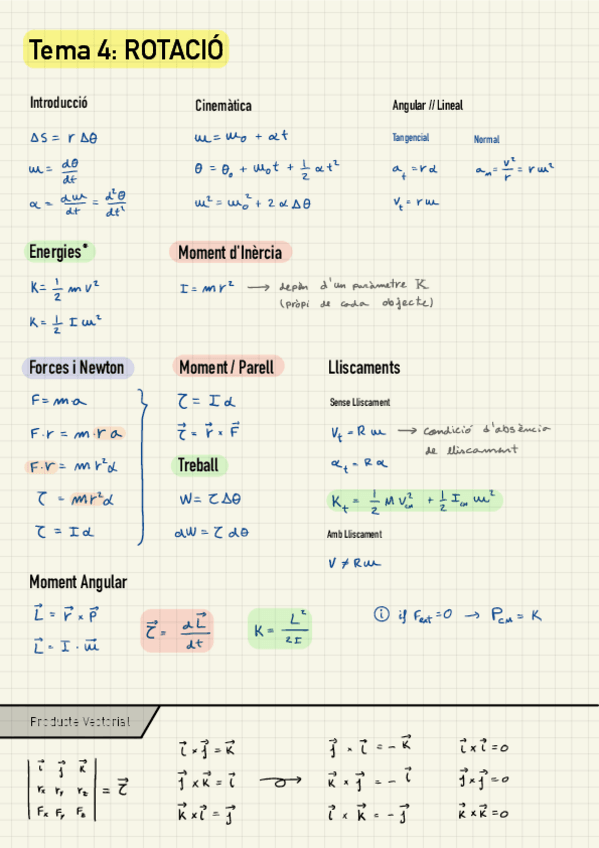 Tema 4: ROTACIÓ
Introducció
ΔS = r Δθ
ω = dθ/dt
α = dω/dt = d²θ/dt²
Cinemàtica
ω = ω₀ + αt
θ = θ₀ + ω₀t + 1/2 αt²
ω² = ω₀² + 2αΔθ
Angular // Lineal
Tangencial
a_t = rα
v_t = rω
Normal
a_n = v²/r = rω²
Energies*
K = 1/2 mv²
K = 1/2 Iω²
Moment d'Inèrcia
I = mr² → depèn d'un paràmetre K
(propi de cada objecte)
Forces i Newton
F = m·a
F·r = m·ra
F·r = mr²α
τ = mr²α
τ = Iα
Moment / Parell
τ = Iα
τ⃗ = r⃗ × F⃗
Treball
W = τΔθ
dW = τdθ
Lliscaments
Sense Lliscament
V_t = Rω → condició d'absència
de lliscament
α_t = Rα
K_t = 1/2 M V²_CM + 1/2 I_CM ω²
Amb Lliscament
V ≠ Rω
Moment Angular
L⃗ = r⃗ × P⃗
L⃗ = I · ω⃗
τ⃗ = dL⃗/dt
K = L²/2I
ⓘ if F_ext = 0 → P_CM = K
Producte Vectorial
| i⃗ j⃗ k⃗ |
| r_x r_y r_z | = τ⃗
| F_x F_y F_z |
i⃗ × j⃗ = k⃗
j⃗ × k⃗ = i⃗ →
k⃗ × i⃗ = j⃗
j⃗ × i⃗ = -k⃗
k⃗ × j⃗ = -i⃗
i⃗ × k⃗ = -j⃗
i⃗ × i⃗ = 0
j⃗ × j⃗ = 0
k⃗ × k⃗ = 0